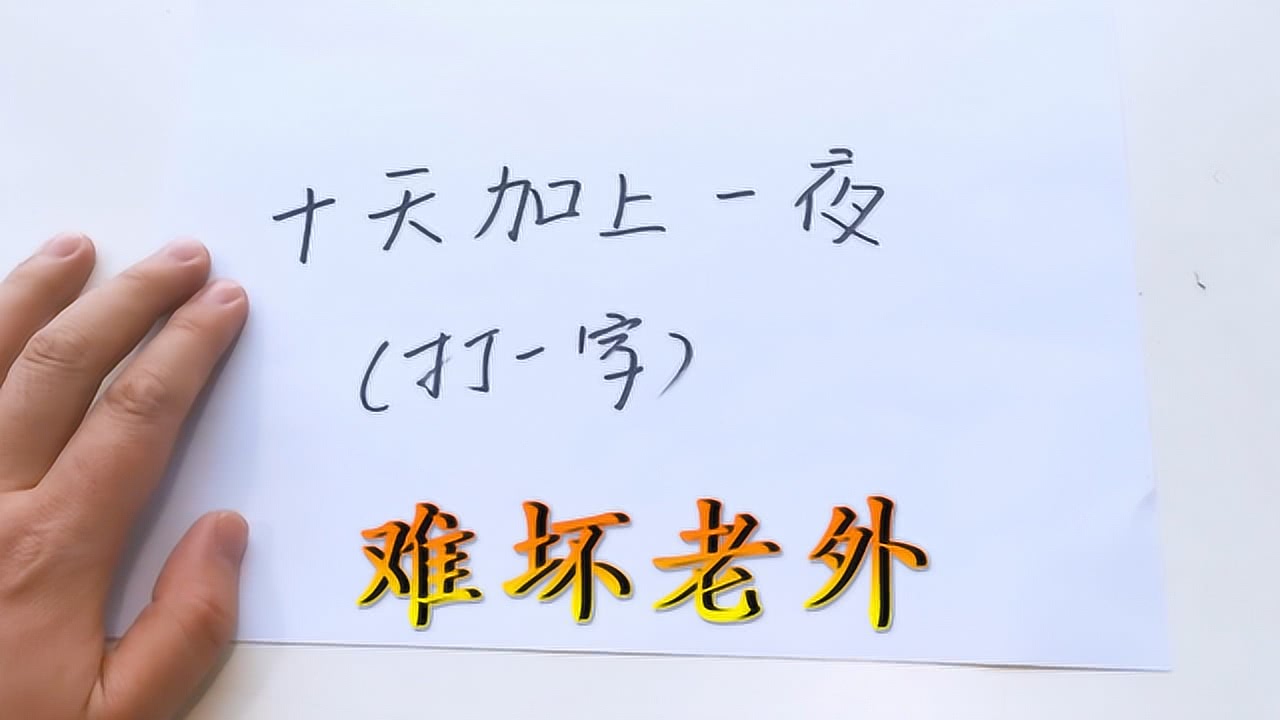 十天加上一夜
(打一字)
难坏老外